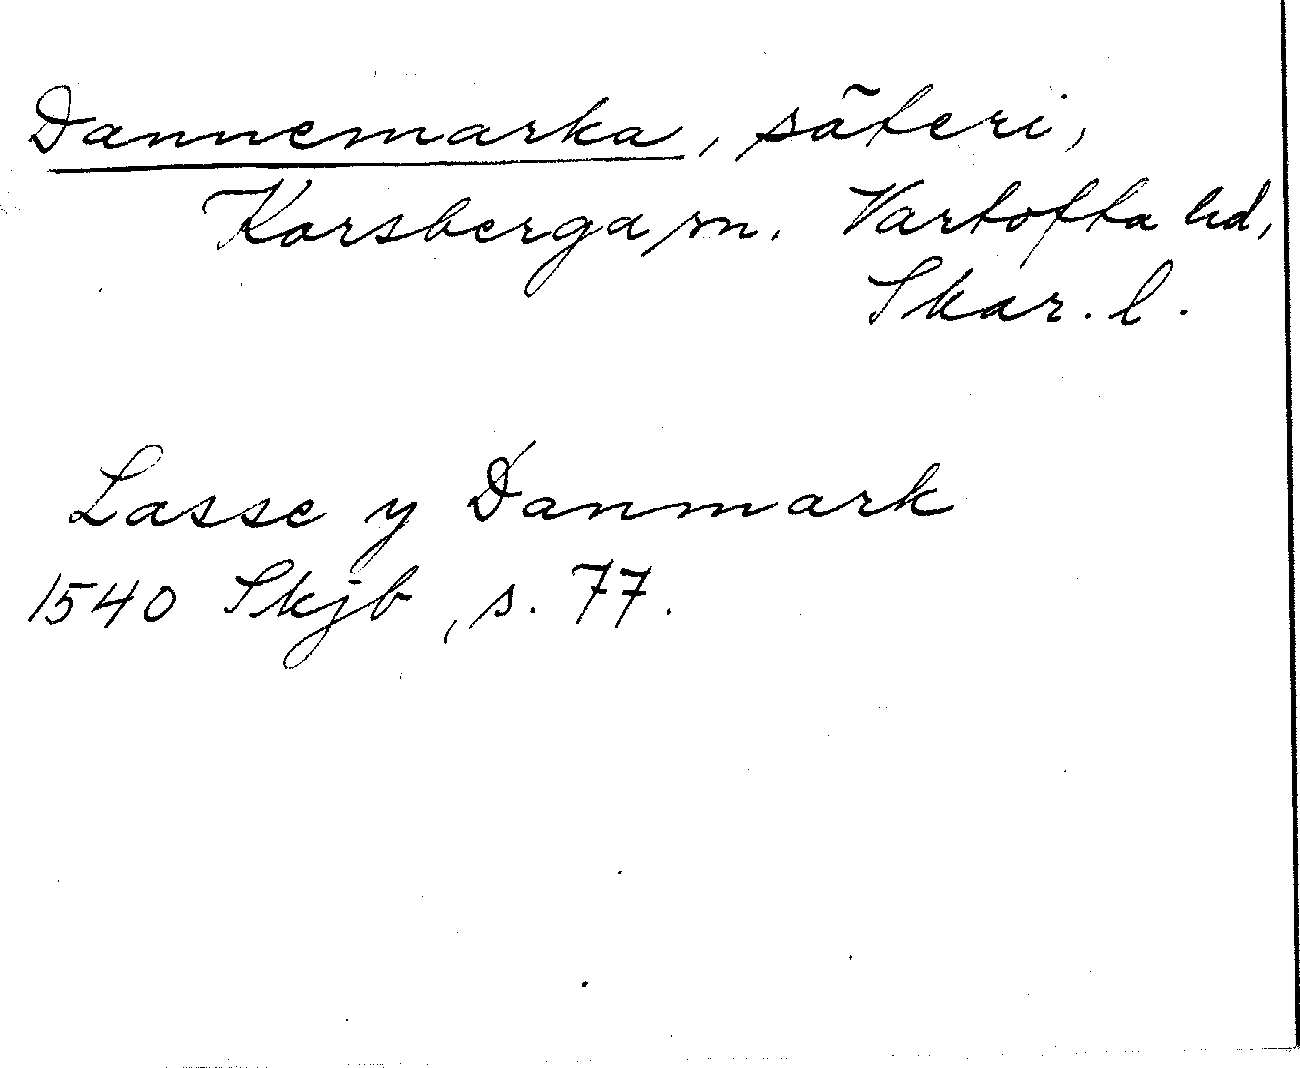 Dannemarka, säteri,
Korsberga sn. Vartofta hd,
Skar. l.
Lasse y Danmark
1540 Skjb, s. 77.